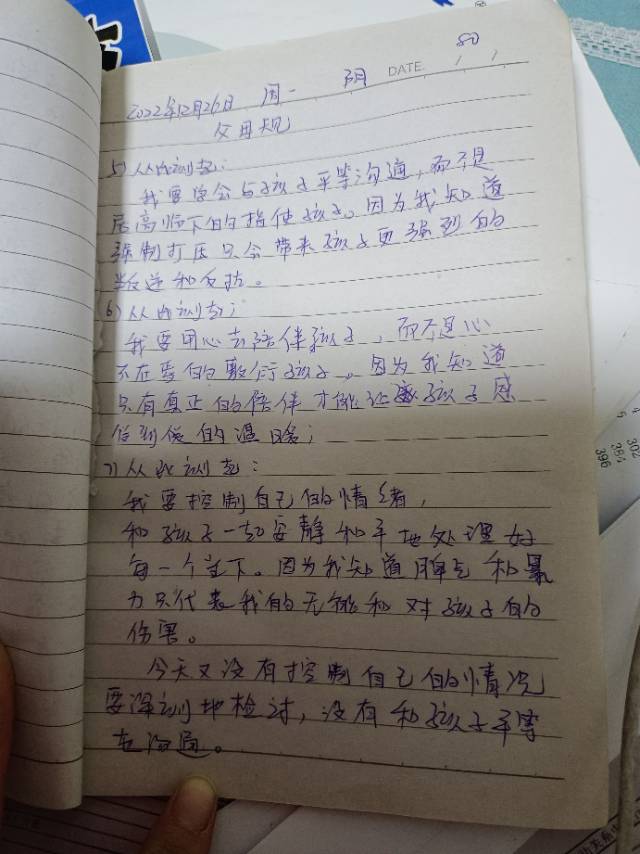 80
2022年12月26日 周一 阴 DATE / /
父母规
5)从此刻起:
我要学会与孩子平等沟通,而不是
居高临下的指使孩子。因为我知道
强制打压只会带来孩子更强烈的
叛逆和反抗。
6)从此刻起:
我要用心去陪伴孩子,而不是心
不在焉的敷衍孩子。因为我知道
只有真正的陪伴才能让孩子感
到爱的温暖;
7)从此刻起:
我要控制自己的情绪,
和孩子一起安静和平地处理好
每一个当下。因为我知道脾气和暴
力只代表我的无能和对孩子的
伤害。
今天又没有控制自己的情况
要深刻地检讨,没有和孩子平等
在沟通。
302
384
396